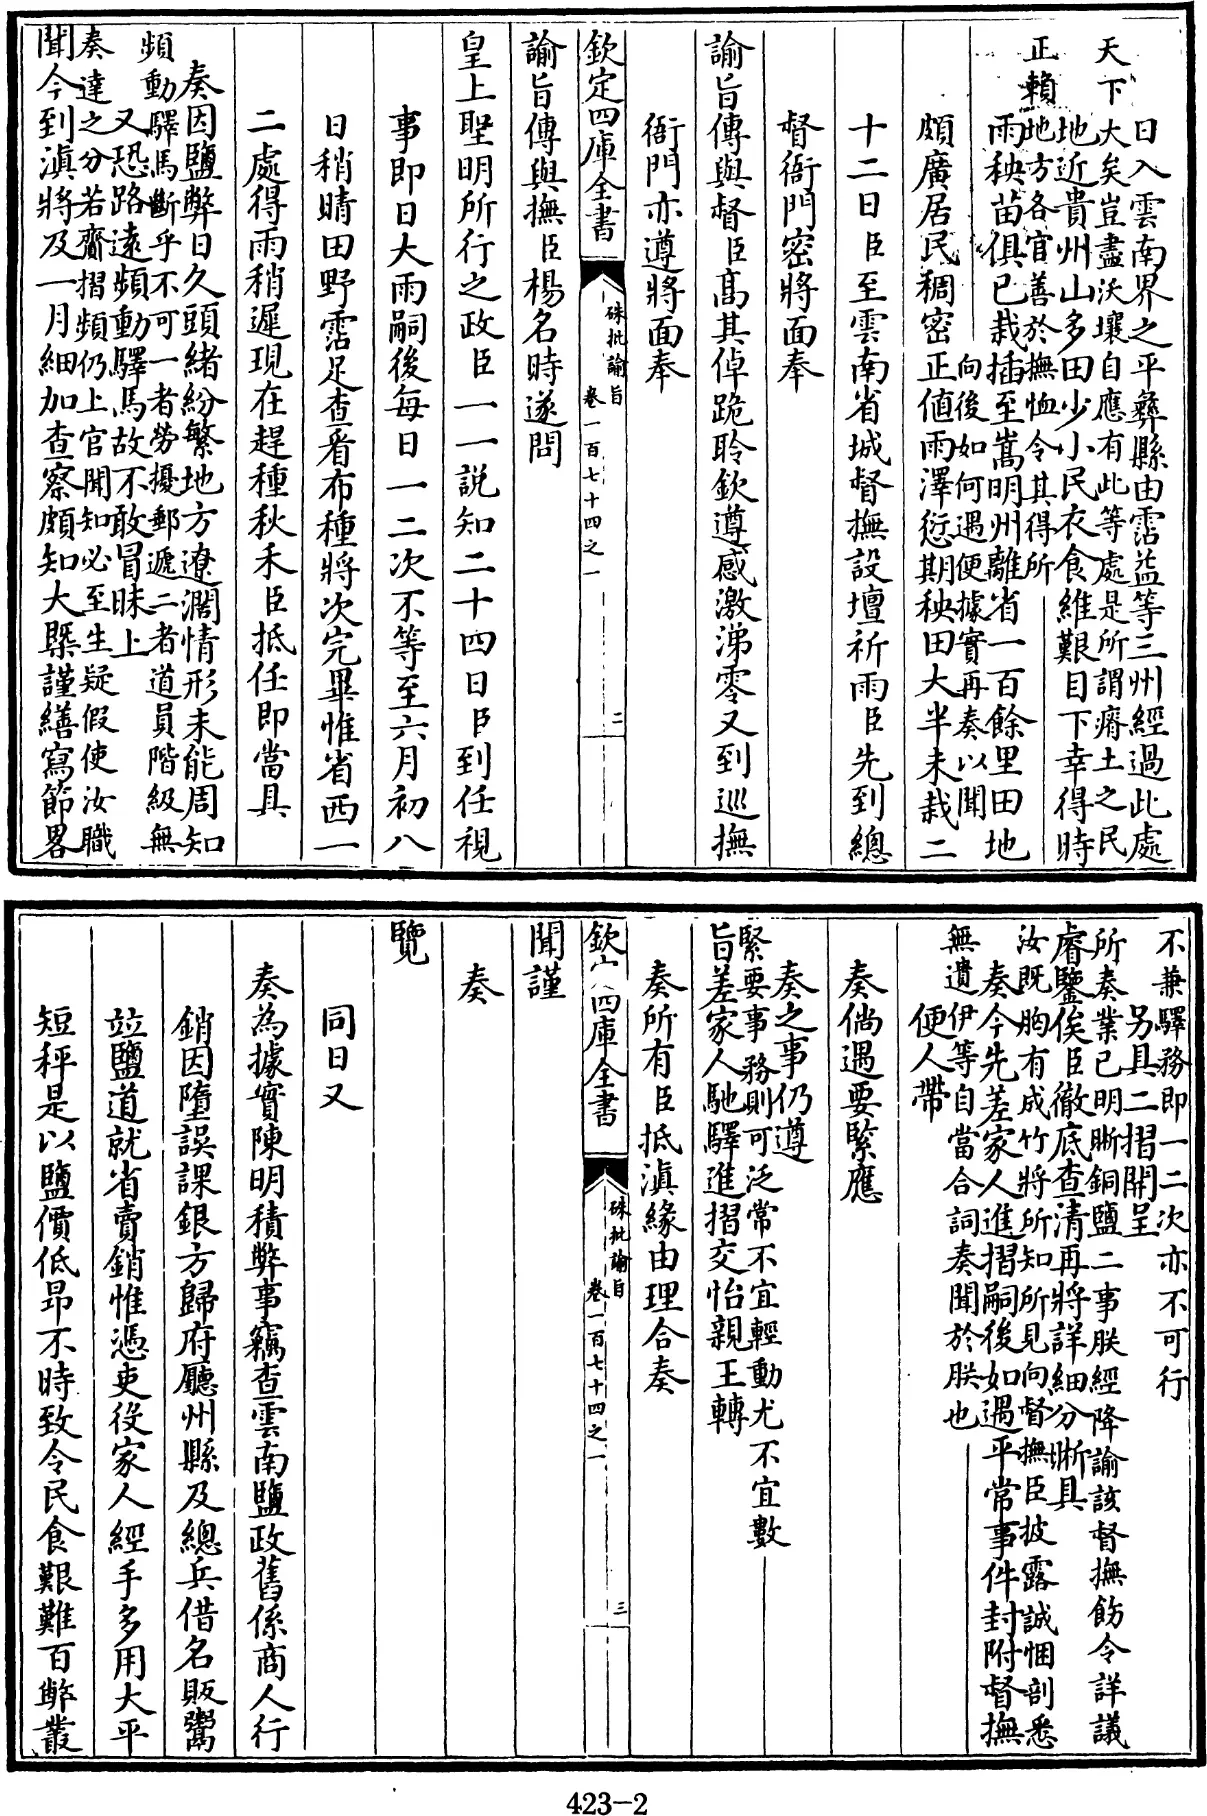 日入雲南界之平彝縣由霑益等三州經過此處
天下大矣豈盡沃壤自應有此等處是所謂瘠土之民
地近貴州山多田少小民衣食維艱目下幸得時
正賴地方各官善於撫恤令其得所
雨秧苗俱已栽插至嵩明州離省一百餘里田地
向後如何遇便據實再奏以聞
頗廣居民稠密正值雨澤愆期秧田大半未栽二
十二日臣至雲南省城督撫設壇祈雨臣先到總
督衙門密將面奉
諭旨傳與督臣高其倬跪聆欽遵感激涕零又到巡撫
衙門亦遵將面奉
欽定四庫全書 硃批諭旨 卷一百七十四之一 二
諭旨傳與撫臣楊名時遂問
皇上聖明所行之政臣一一説知二十四日臣到任視
事即日大雨嗣後每日一二次不等至六月初八
日稍晴田野霑足查看布種將次完畢惟省西一
二處得雨稍遲現在趕種秋禾臣抵任即當具
奏因鹽弊日久頭緒紛繁地方遼濶情形未能周知
頻動驛馬斷乎不可一者勞擾郵遞二者道員階級無
又恐路遠頻動驛馬故不敢冒昧上
奏達之分若齎摺頻仍上官聞知必至生疑假使汝職
聞今到滇將及一月細加查察頗知大槩謹繕寫節畧
不兼驛務即一二次亦不可行
另具二摺開呈
所奏業已明晰銅鹽二事朕經降諭該督撫飭令詳議
睿鑒俟臣徹底查清再將詳細分晰具
汝既胸有成竹將所知所見向督撫臣披露誠悃剖悉
奏今先差家人進摺嗣後如遇平常事件封附督撫
無遺伊等自當合詞奏聞於朕也
便人帶
奏倘遇要緊應
奏之事仍遵
緊要事務則可泛常不宜輕動尤不宜數
旨差家人馳驛進摺交怡親王轉
奏所有臣抵滇緣由理合奏
欽定四庫全書 硃批諭旨 卷一百七十四之一 三
聞謹
奏
覽
同日又
奏為據實陳明積弊事竊查雲南鹽政舊係商人行
銷因墮誤課銀方歸府廳州縣及總兵借名販鬻
竝鹽道就省賣銷惟憑吏役家人經手多用大平
短秤是以鹽價低昂不時致令民食艱難百弊叢
423-2